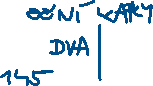 OČNÍ KAPKY
DVA
145